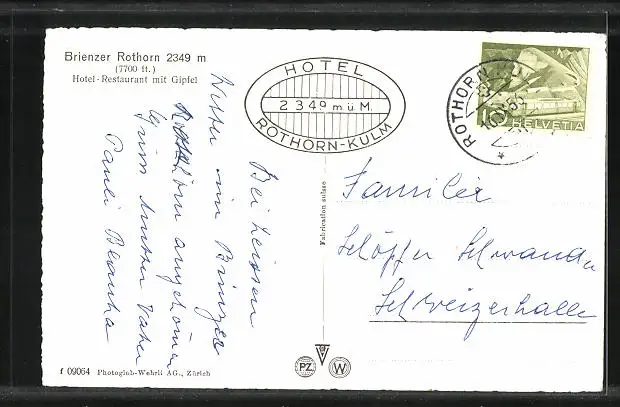 Brienzer Rothorn 2349 m
(7700 ft.)
Hotel-Restaurant mit Gipfel
HOTEL
2349 m ü M.
ROTHORN-KULM
ROTHORN
10
HELVETIA
Bei heissen
Wetter im Brienzer
Rothorn angekommen
Grüss Mutter Vater
Pauli Blanka
Fabrication suisse
Familie
Schöpfer Schwander
Schweizerhalle
f 09064 Photoglob-Wehrli AG., Zürich
PZ
W